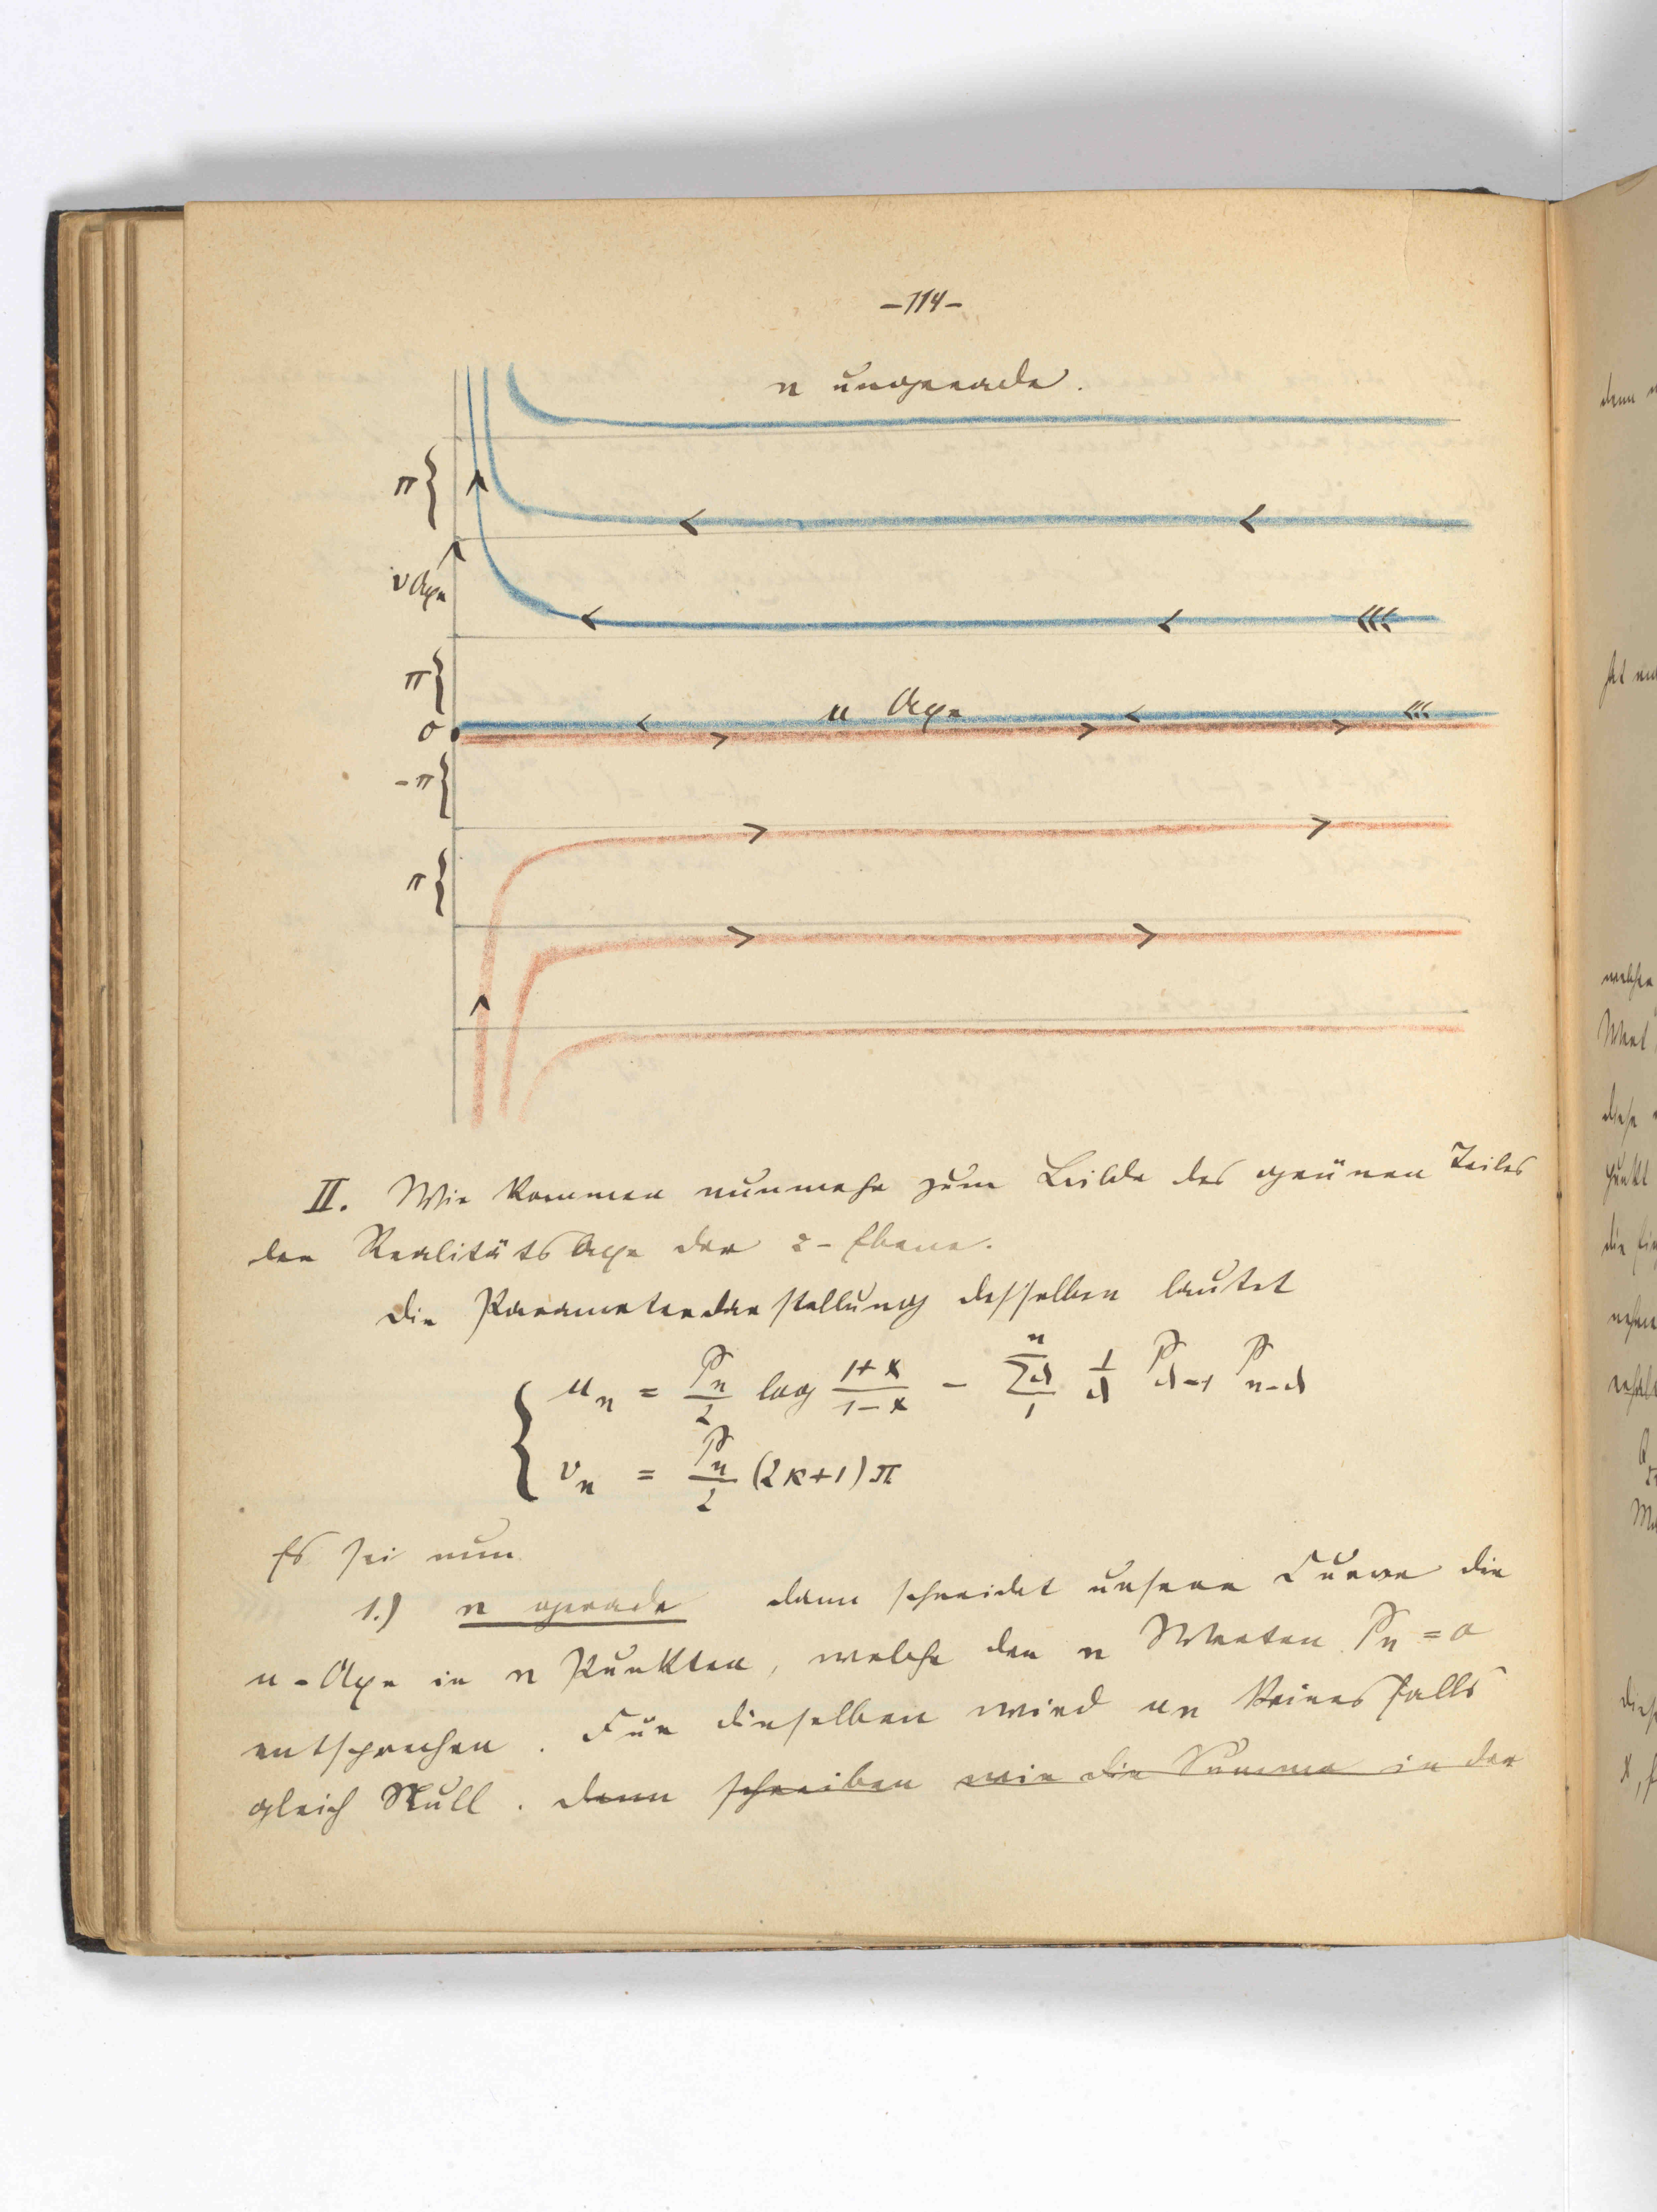 -114-
n ungerade.
π {
v Axe
π {
u Axe
0
-π {
π {
II. Wir kommen nunmehr zum Bilde des grünen Teiles
der Realitätsaxe der z-Ebene.
Die Parameterdarstellung desselben lautet
u_n = P_n/2 log (1+x)/(1-x) - Σ_1^n λ 1/λ P_{λ-1} P_{n-λ}
v_n = P_n/2 (2κ+1)π
Es sei nun
1.) n gerade dann schneidet unsere Curve die
u-Axe in n Punkten, welche den n Werten P_n = 0
entsprechen. Für dieselben wird u_n keinesfalls
gleich Null. denn schreiben wir die Summe in der
denn
Wert
diese
punkt